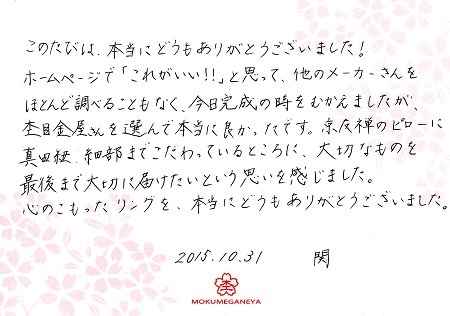 このたびは、本当にどうもありがとうございました！
ホームページで「これがいい!!」と思って、他のメーカーさんを
ほとんど調べることもなく、今日完成の時をむかえましたが、
杢目金屋さんを選んで本当に良かったです。京友禅のピローに
真田紐、細部までこだわっているところに、大切なものを
最後まで大切に届けたいという思いを感じました。
心のこもったリングを、本当にどうもありがとうございました。
2015.10.31 関
MOKUMEGANEYA